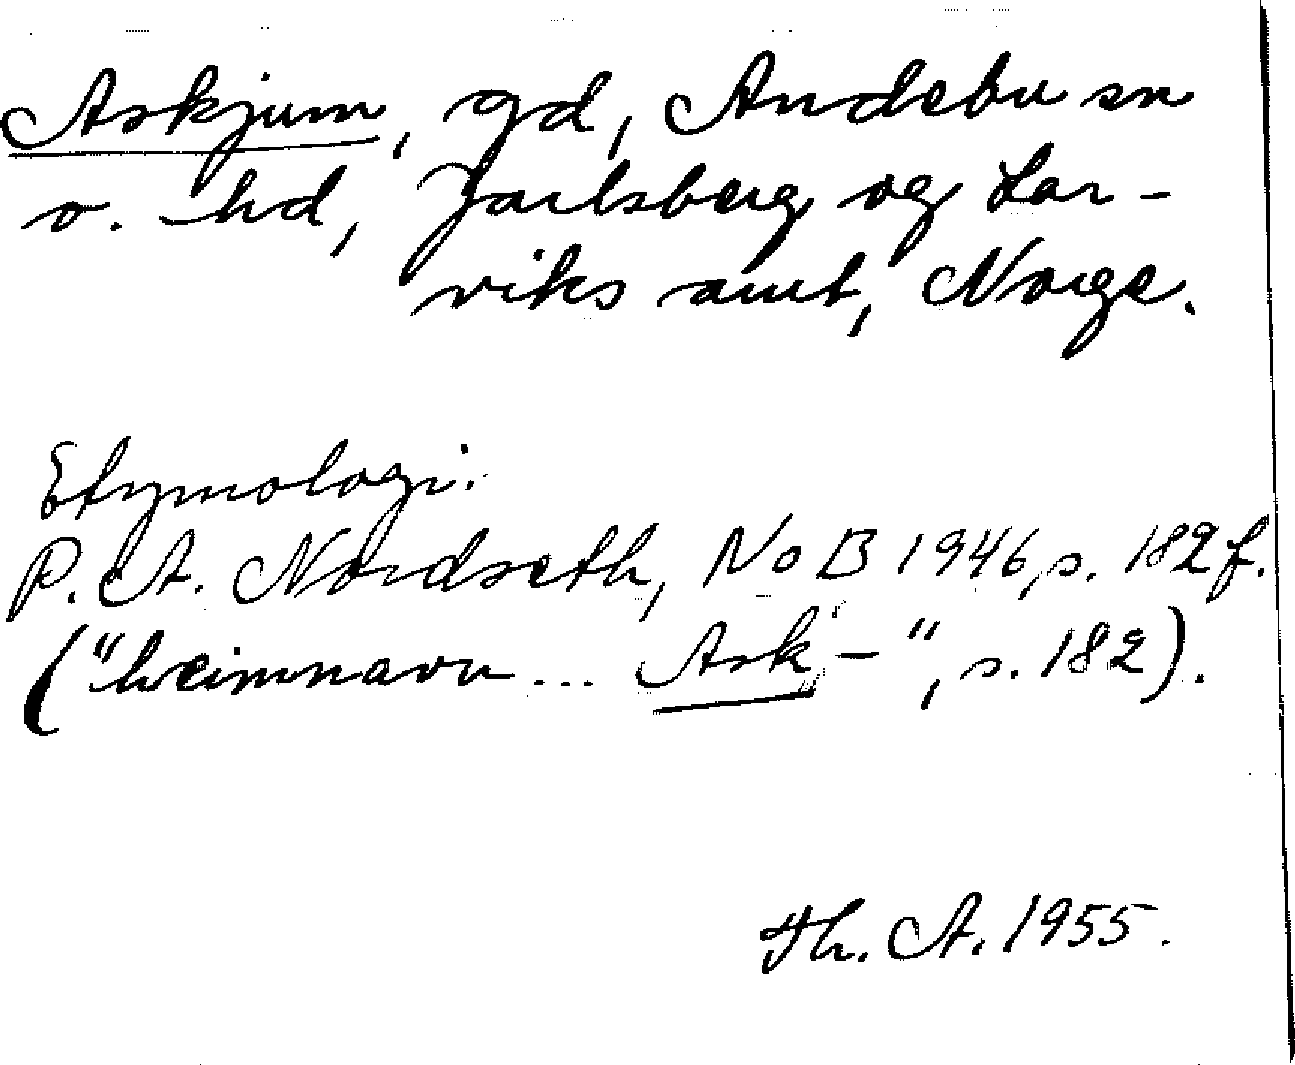 Askjum, gd, Andebu sn
o. hd, Jarlsberg og Lar-
viks amt, Norge.
Etymologi.
P. A. Nordseth, NoB 1946, s. 182 f.
("heimnavn... Ask-", s. 182).
Th. A. 1955.